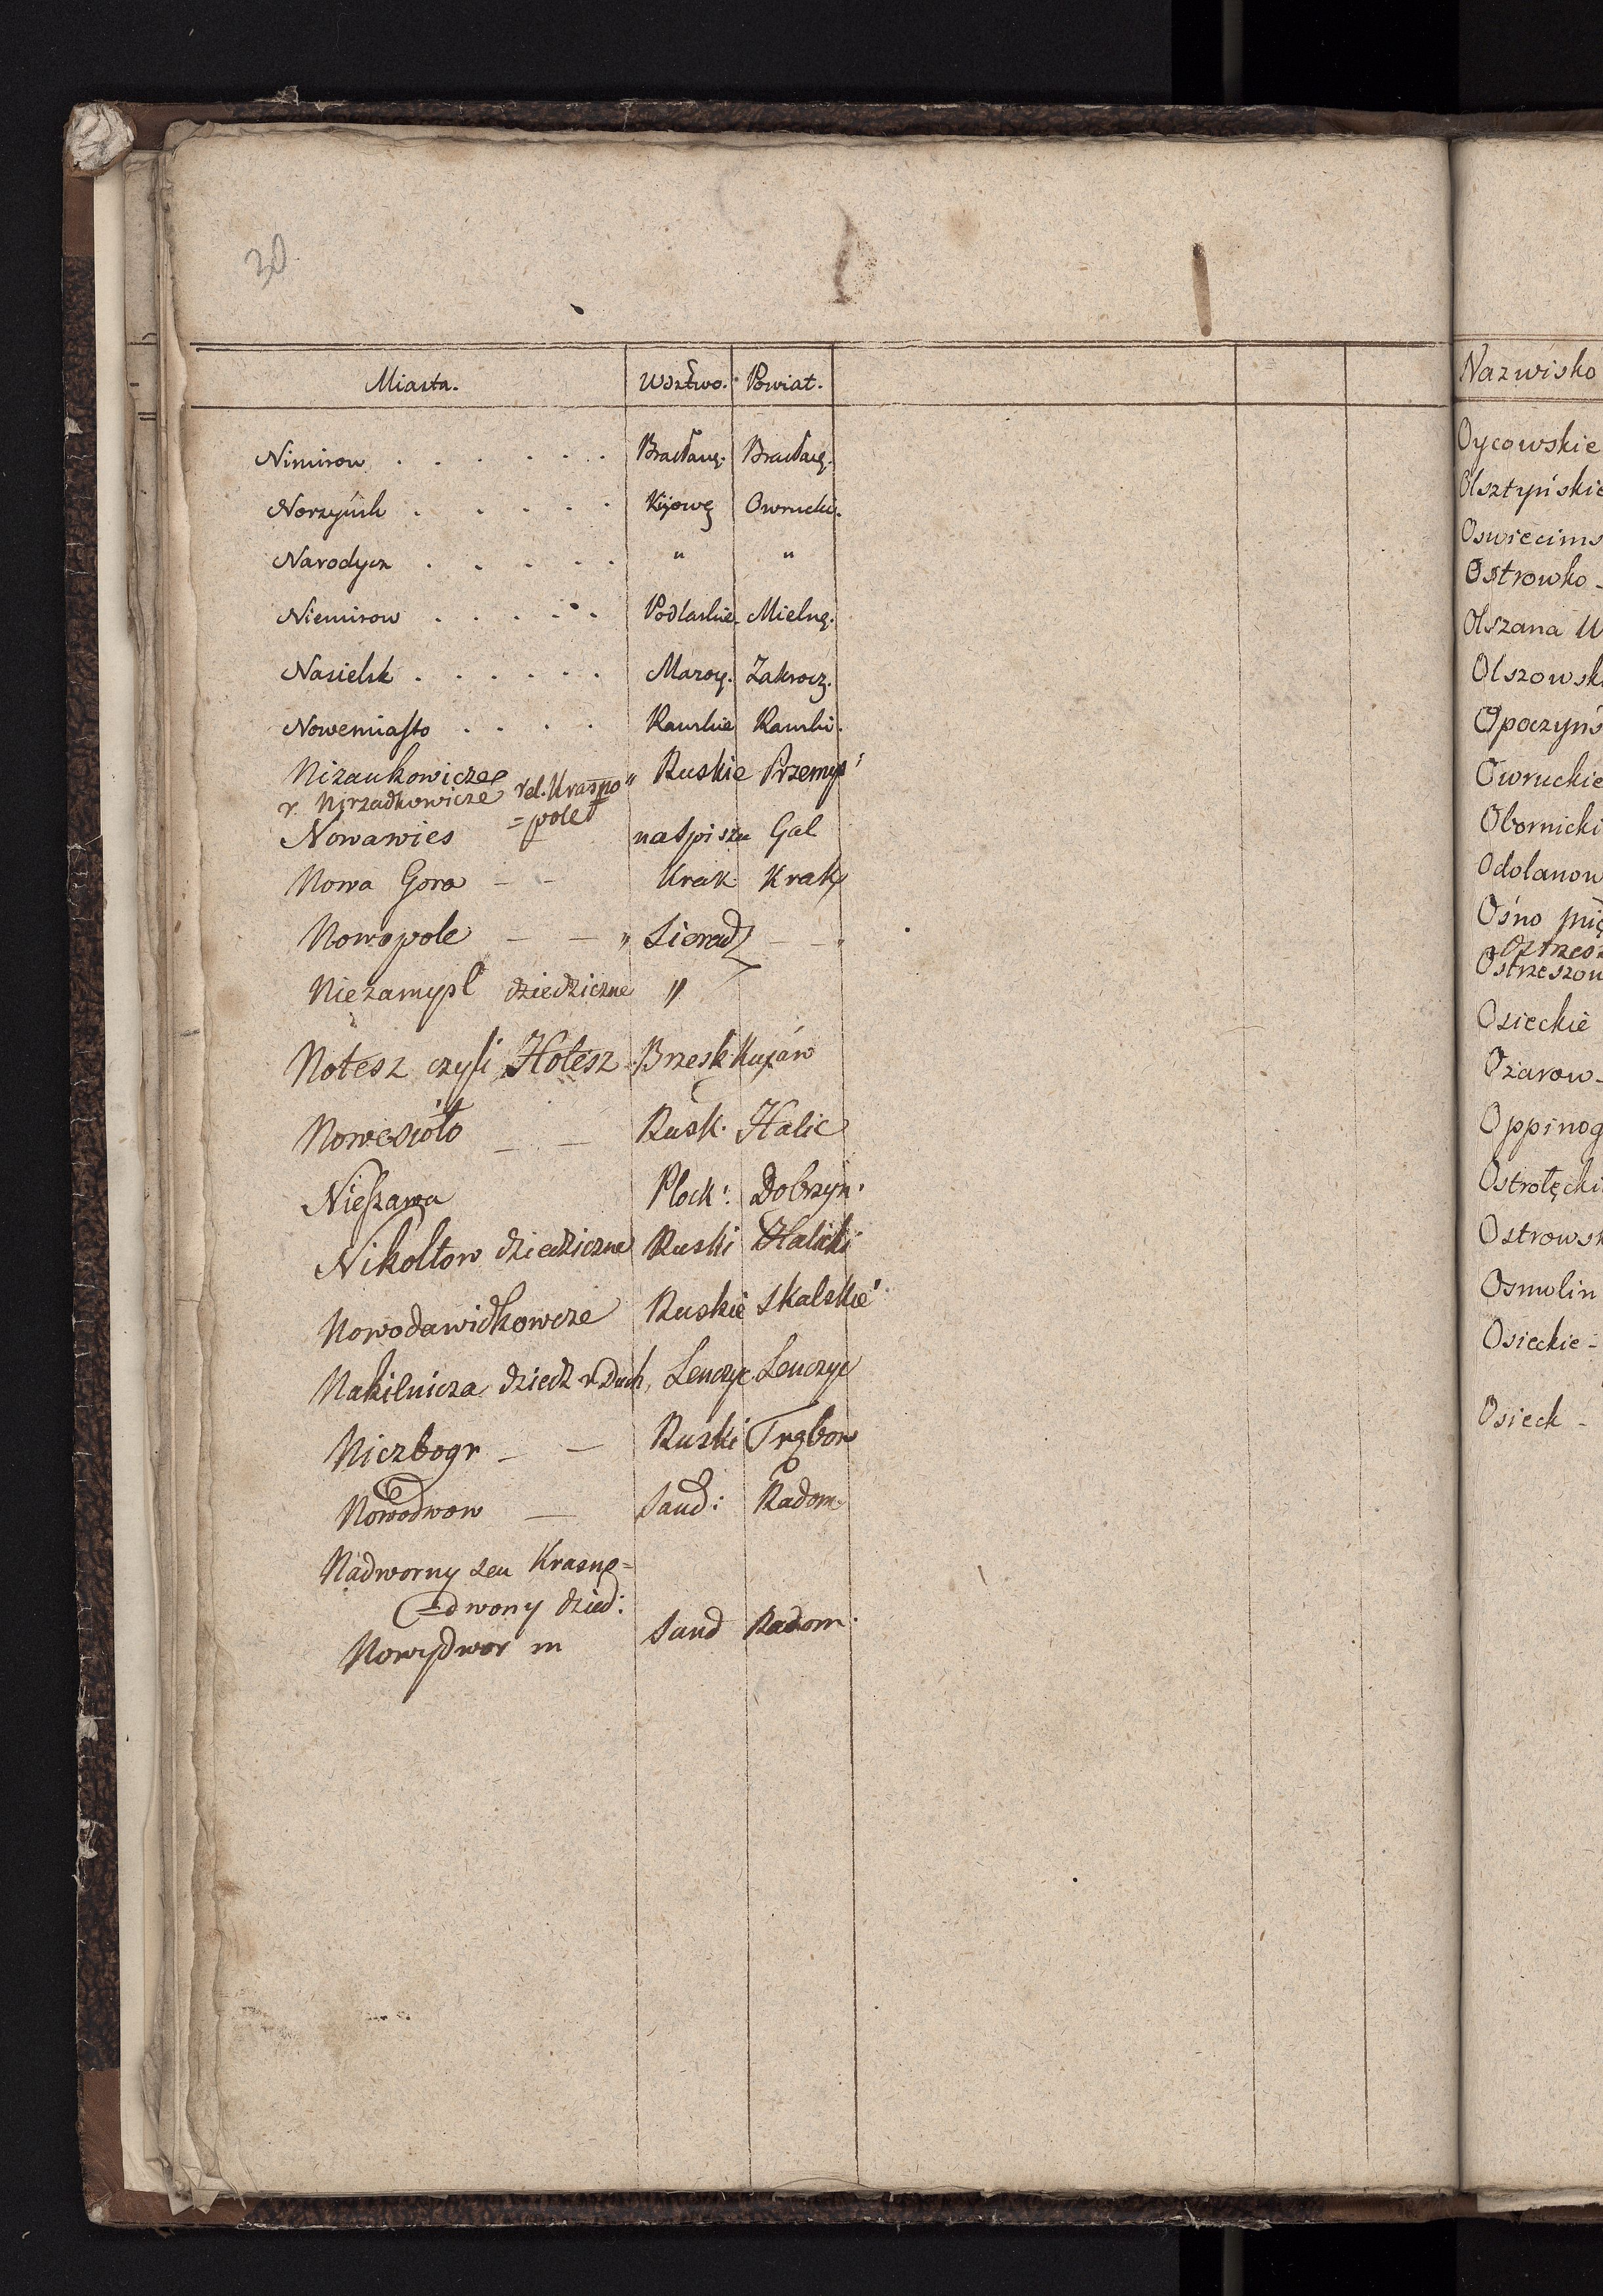 30
Miasta. Wdztwo. Powiat.
Nimirow . . . . . . Bracławs. Bracławs.
Norzyńsk . . . . . Kijows Owrucki.
Narodycz . . . . . " "
Niemirow . . . . . Podlaskie. Mielns.
Nasielsk . . . . . . Mazow. Zakrocz.
Nowemiasto . . . . Rawskie Rawski.
Nizankowicze Ruskie Przemyś
r. Nirzadkowicze vel. Kraspo"
=pole
Nowawies na Spiszu Gal
Nowa Gora - - Krak Krak
Nowopole — — " Sierad — — "
Niezamyśl dziedziczne "
Notesz czyli Hotesz Brzesk. Kujaw
Nowesioło — — Rusk. Halic
Nieszawa Plock: Dobrzyń.
Nikołtow dziedziczne Ruski Halicki
Nowodawidkowcze Ruskie Skalskie
Nakilnicza dziedz Duch, Lenczyc Lenczyc
Niczbogr — — Ruski Trębow
Nowodwow — Sand: Radom.
Nadworny seu Krasne=
=dwony dzied:
Nowydwor m Sand Radom.
Nazwisko
Oycowskie
Olsztyńskie
Oswiecims
Ostrowko -
Olszana W
Olszowsk
Opoczyńs
Owruckie
Obornicki
Odolanow
Ośno
Ostrzes
Ostrzeszow
Osieckie
Ożarow -
Oppinog
Ostrołęcki
Ostrowsk
Osmolin
Osieckie -
Osieck -